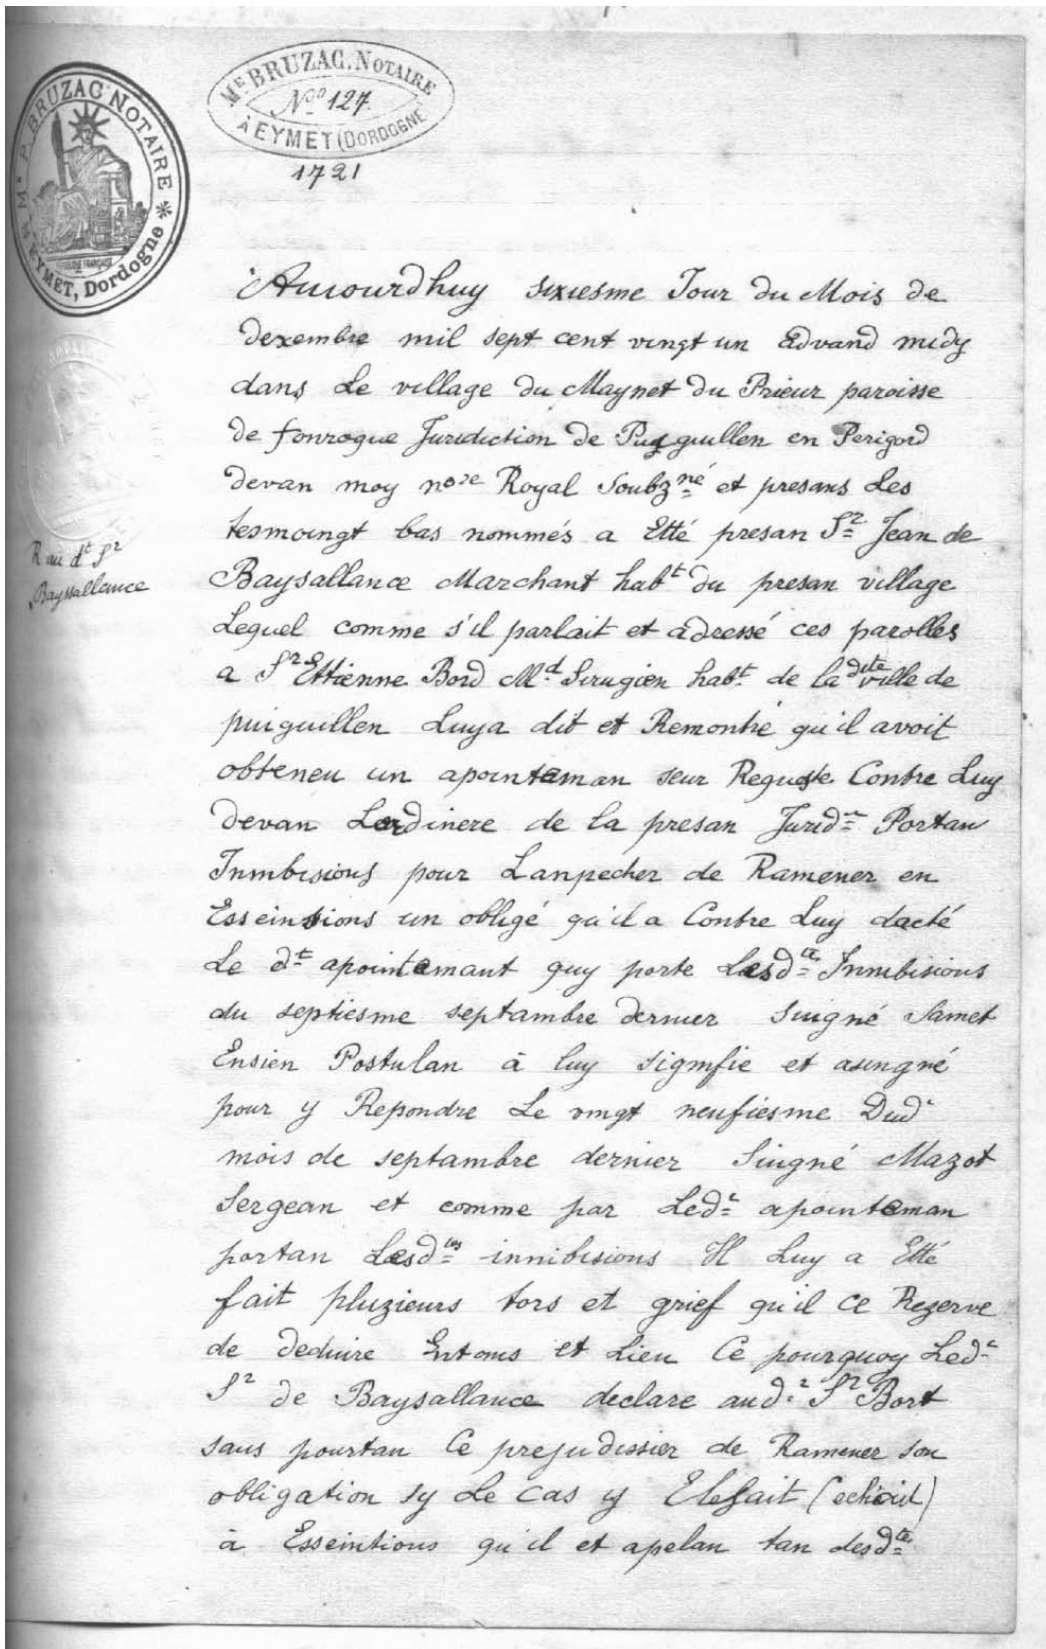 Me BRUZAC. NOTAIRE
No 127.
À EYMET (DORDOGNE
1721
Me P. BRUZAC NOTAIRE
EYMET, Dordogne
Auiourdhuy sixiesme Jour du Mois de
dexembre mil sept cent vingt un advand midy
dans Le village du Maynet du Prieur paroisse
de fonroque Juridiction de Puyguillen en Perigord
devan moy nore Royal Soubzné et presans Les
tesmoingt bas nommés a Etté presan Sr Jean de
Baysallance Marchant habt du presan village
Lequel comme s'il parlait et adressé ces parolles
a Sr Ettienne Bord Md Sirugien habt de la dite ville de
puiguillen Luy a dit et Remontré qu'il avoit
obteneu un apointeman seur Requeste Contre Luy
devan Lordinere de la presan Juridn Portan
Inmbisions pour Lanpecher de Ramener en
Esseintions un obligé qu'il a Contre Luy dacté
Le dt apointemant quy porte Lesdte Innibisions
du septiesme septambre dernier Suigné Samet
Ensien Postulan à luy signifie et asingné
pour y Repondre Le vingt neufiesme Dudt
mois de septambre dernier Suigné Mazot
Sergean et comme par Ledt apointeman
portan Lesdtes innibisions Il Luy a Etté
fait pluzieurs tors et grief qu'il ce Rezerve
de deduire Entams et Lieu Ce pourquoy Ledt
Sr de Baysallance declare audt Sr Bort
sans pourtan Ce prejudissier de Ramener son
obligation sy Le cas y Elefait (echoid)
à Esseintions qu'il et apelan tan desdte
R au dt Sr
Bayssallance